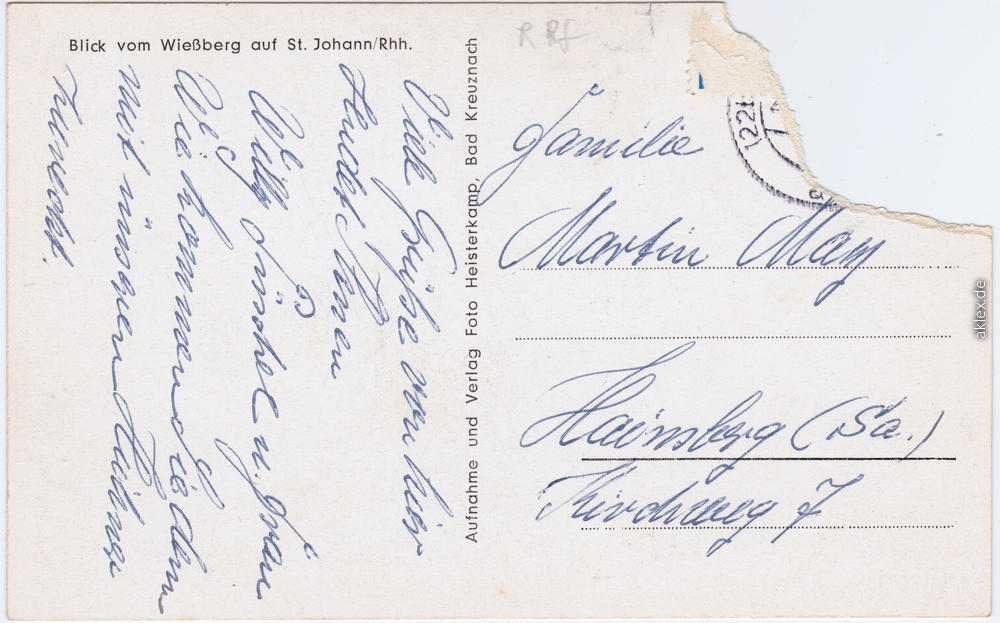 Blick vom Wießberg auf St. Johann/Rhh.
Viele Grüße von hier
sendet Ihnen
Willy u. Frau
Wie kommen Sie denn
mit unseren Hühner
zurecht.
Aufnahme und Verlag Foto Heisterkamp, Bad Kreuznach
R Rf
(22b
Familie
Martin May
Hainsberg (Sa.)
Kirchweg 7
aklex.de